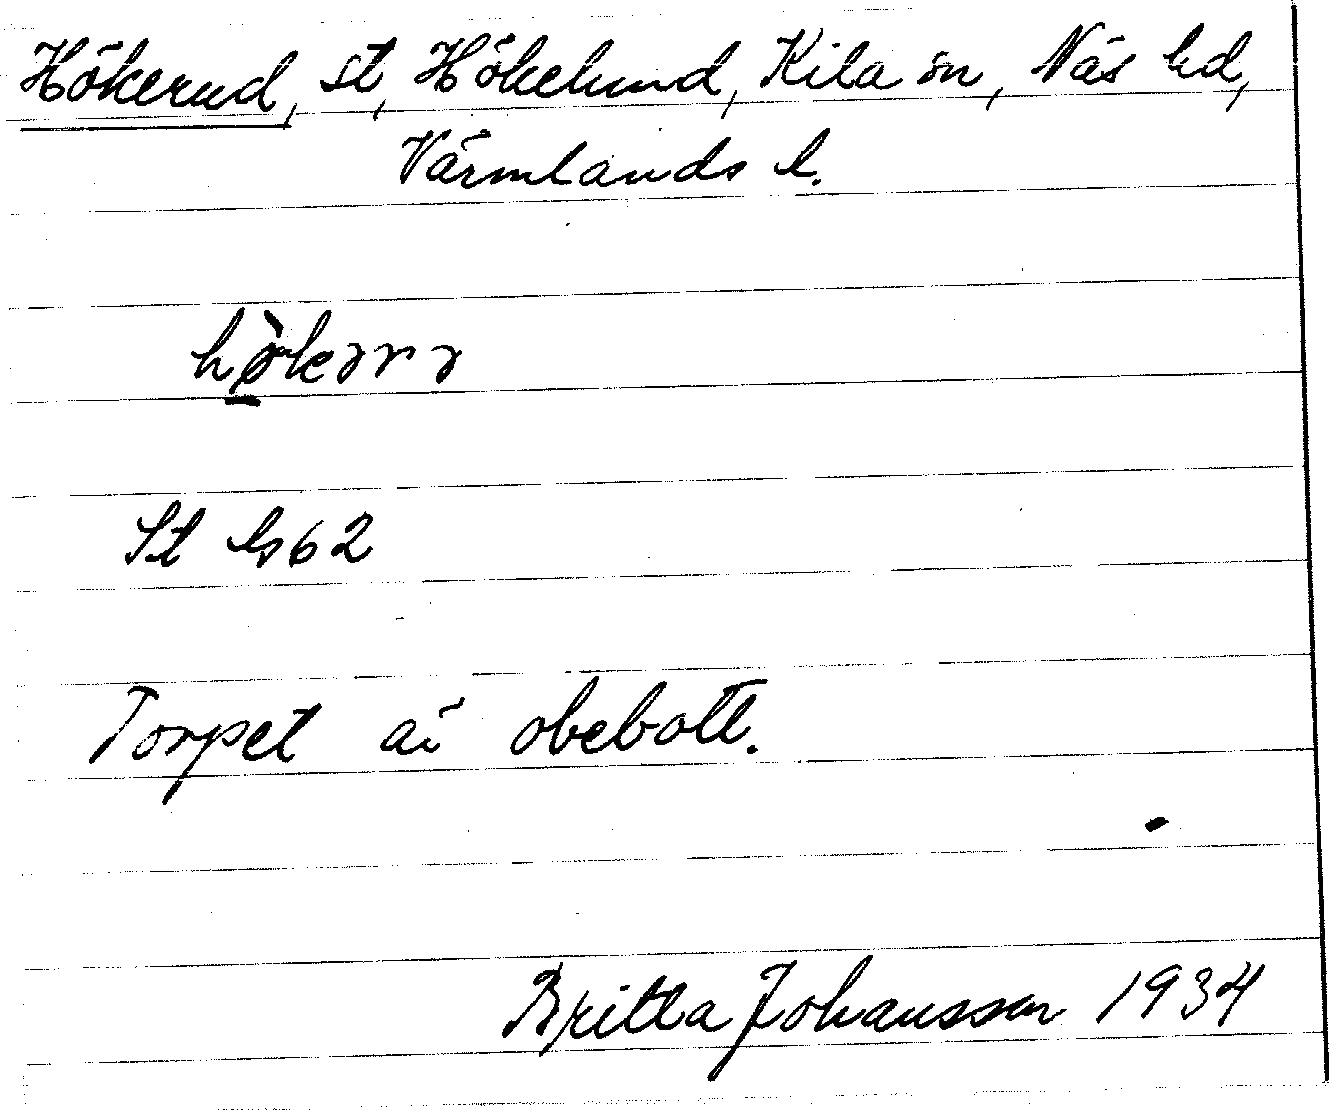 Hökerud, st, Hökelund, Kila sn, Näs hd,
Värmlands l.
St ls 62
Torpet är obebott.
Britta Johansson 1934